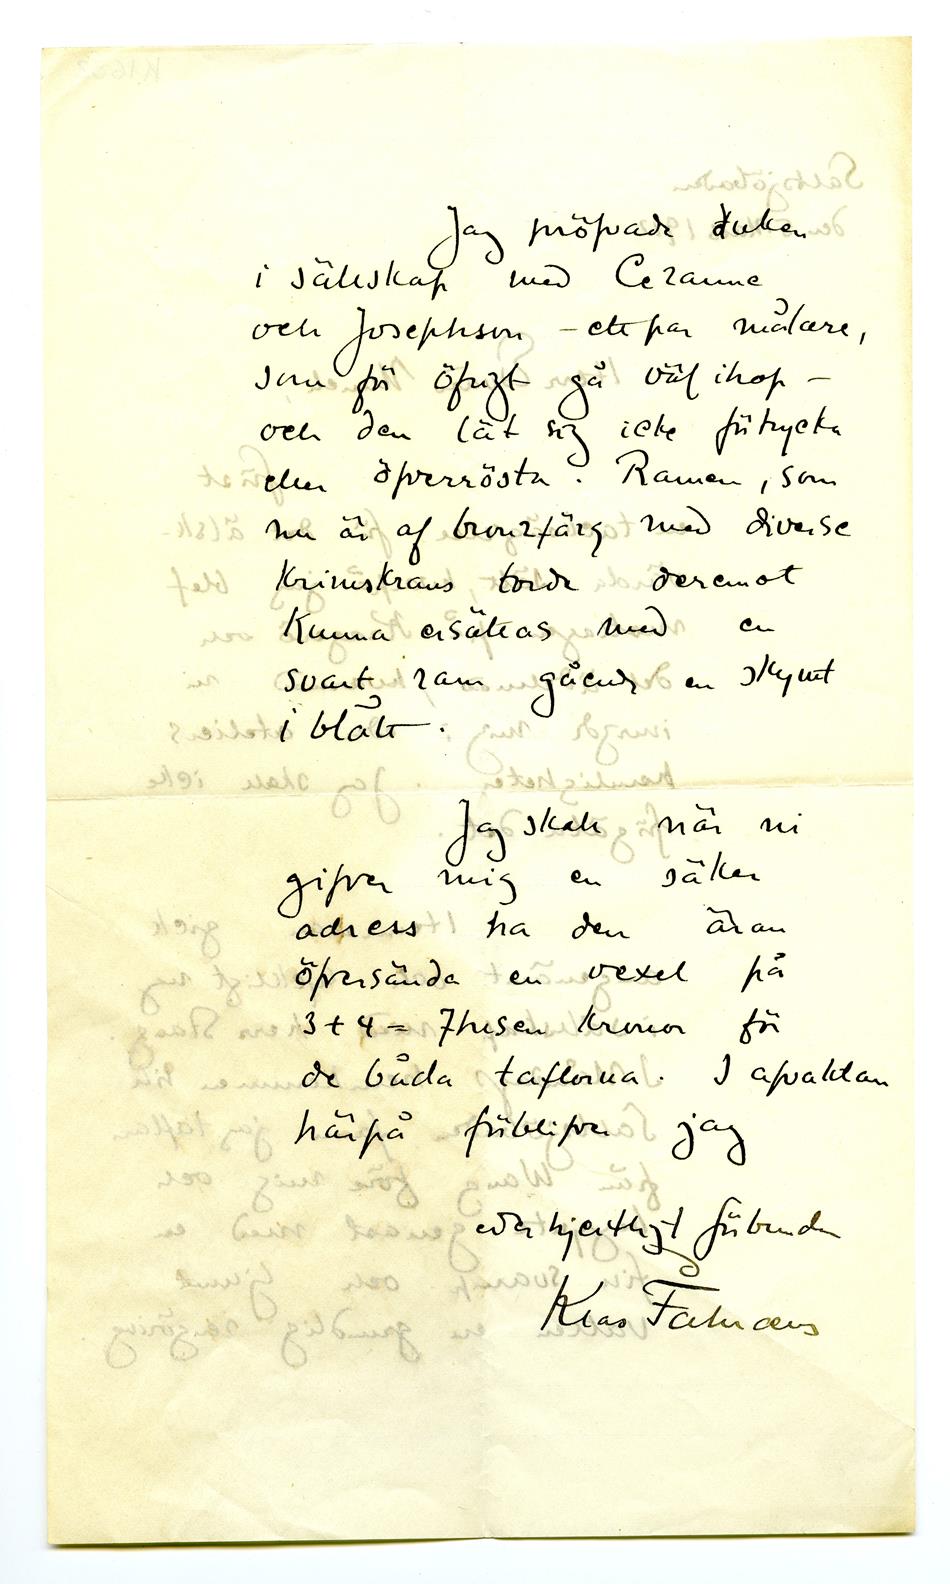 Jag pröfvade duken
i sällskap med Cezanne
och Josephson – ett par målare,
som för öfrigt gå väl ihop –
och den lät sig icke förtrycka
eller öfverrösta. Ramen, som
nu är af bronzfärg med diverse
krimskrams torde deremot
kunna ersättas med en
svart ram gående en skymt
i blått.
Jag skall när ni
gifver mig en säker
adress ha den äran
öfversända en vexel på
3+4 = 7tusen kronor för
de båda taflorna. I afvaktan
härpå förblifver jag
eder hjertligt förbundne
Klas Fåhræus